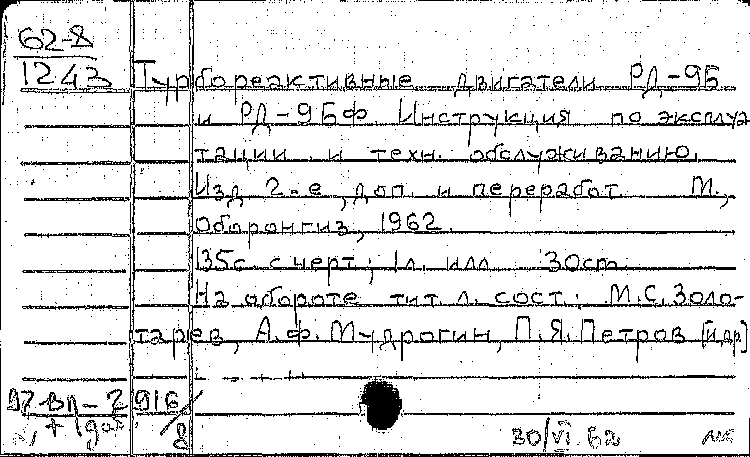 62-8
1243 Турбореактивные двигатели РД-9Б
и РД-9БФ. Инструкция по эксплуа
тации и техн. обслуживанию.
Изд. 2-е, доп. и переработ. М.,
Оборонгиз, 1962.
135с. с черт.; 1л. илл. 30см.
На обороте тит. л. сост.: М.С. Золо-
тарев, А.Ф. Мудрогин, П.Я. Петров [и др]
916/8
30/VI 62